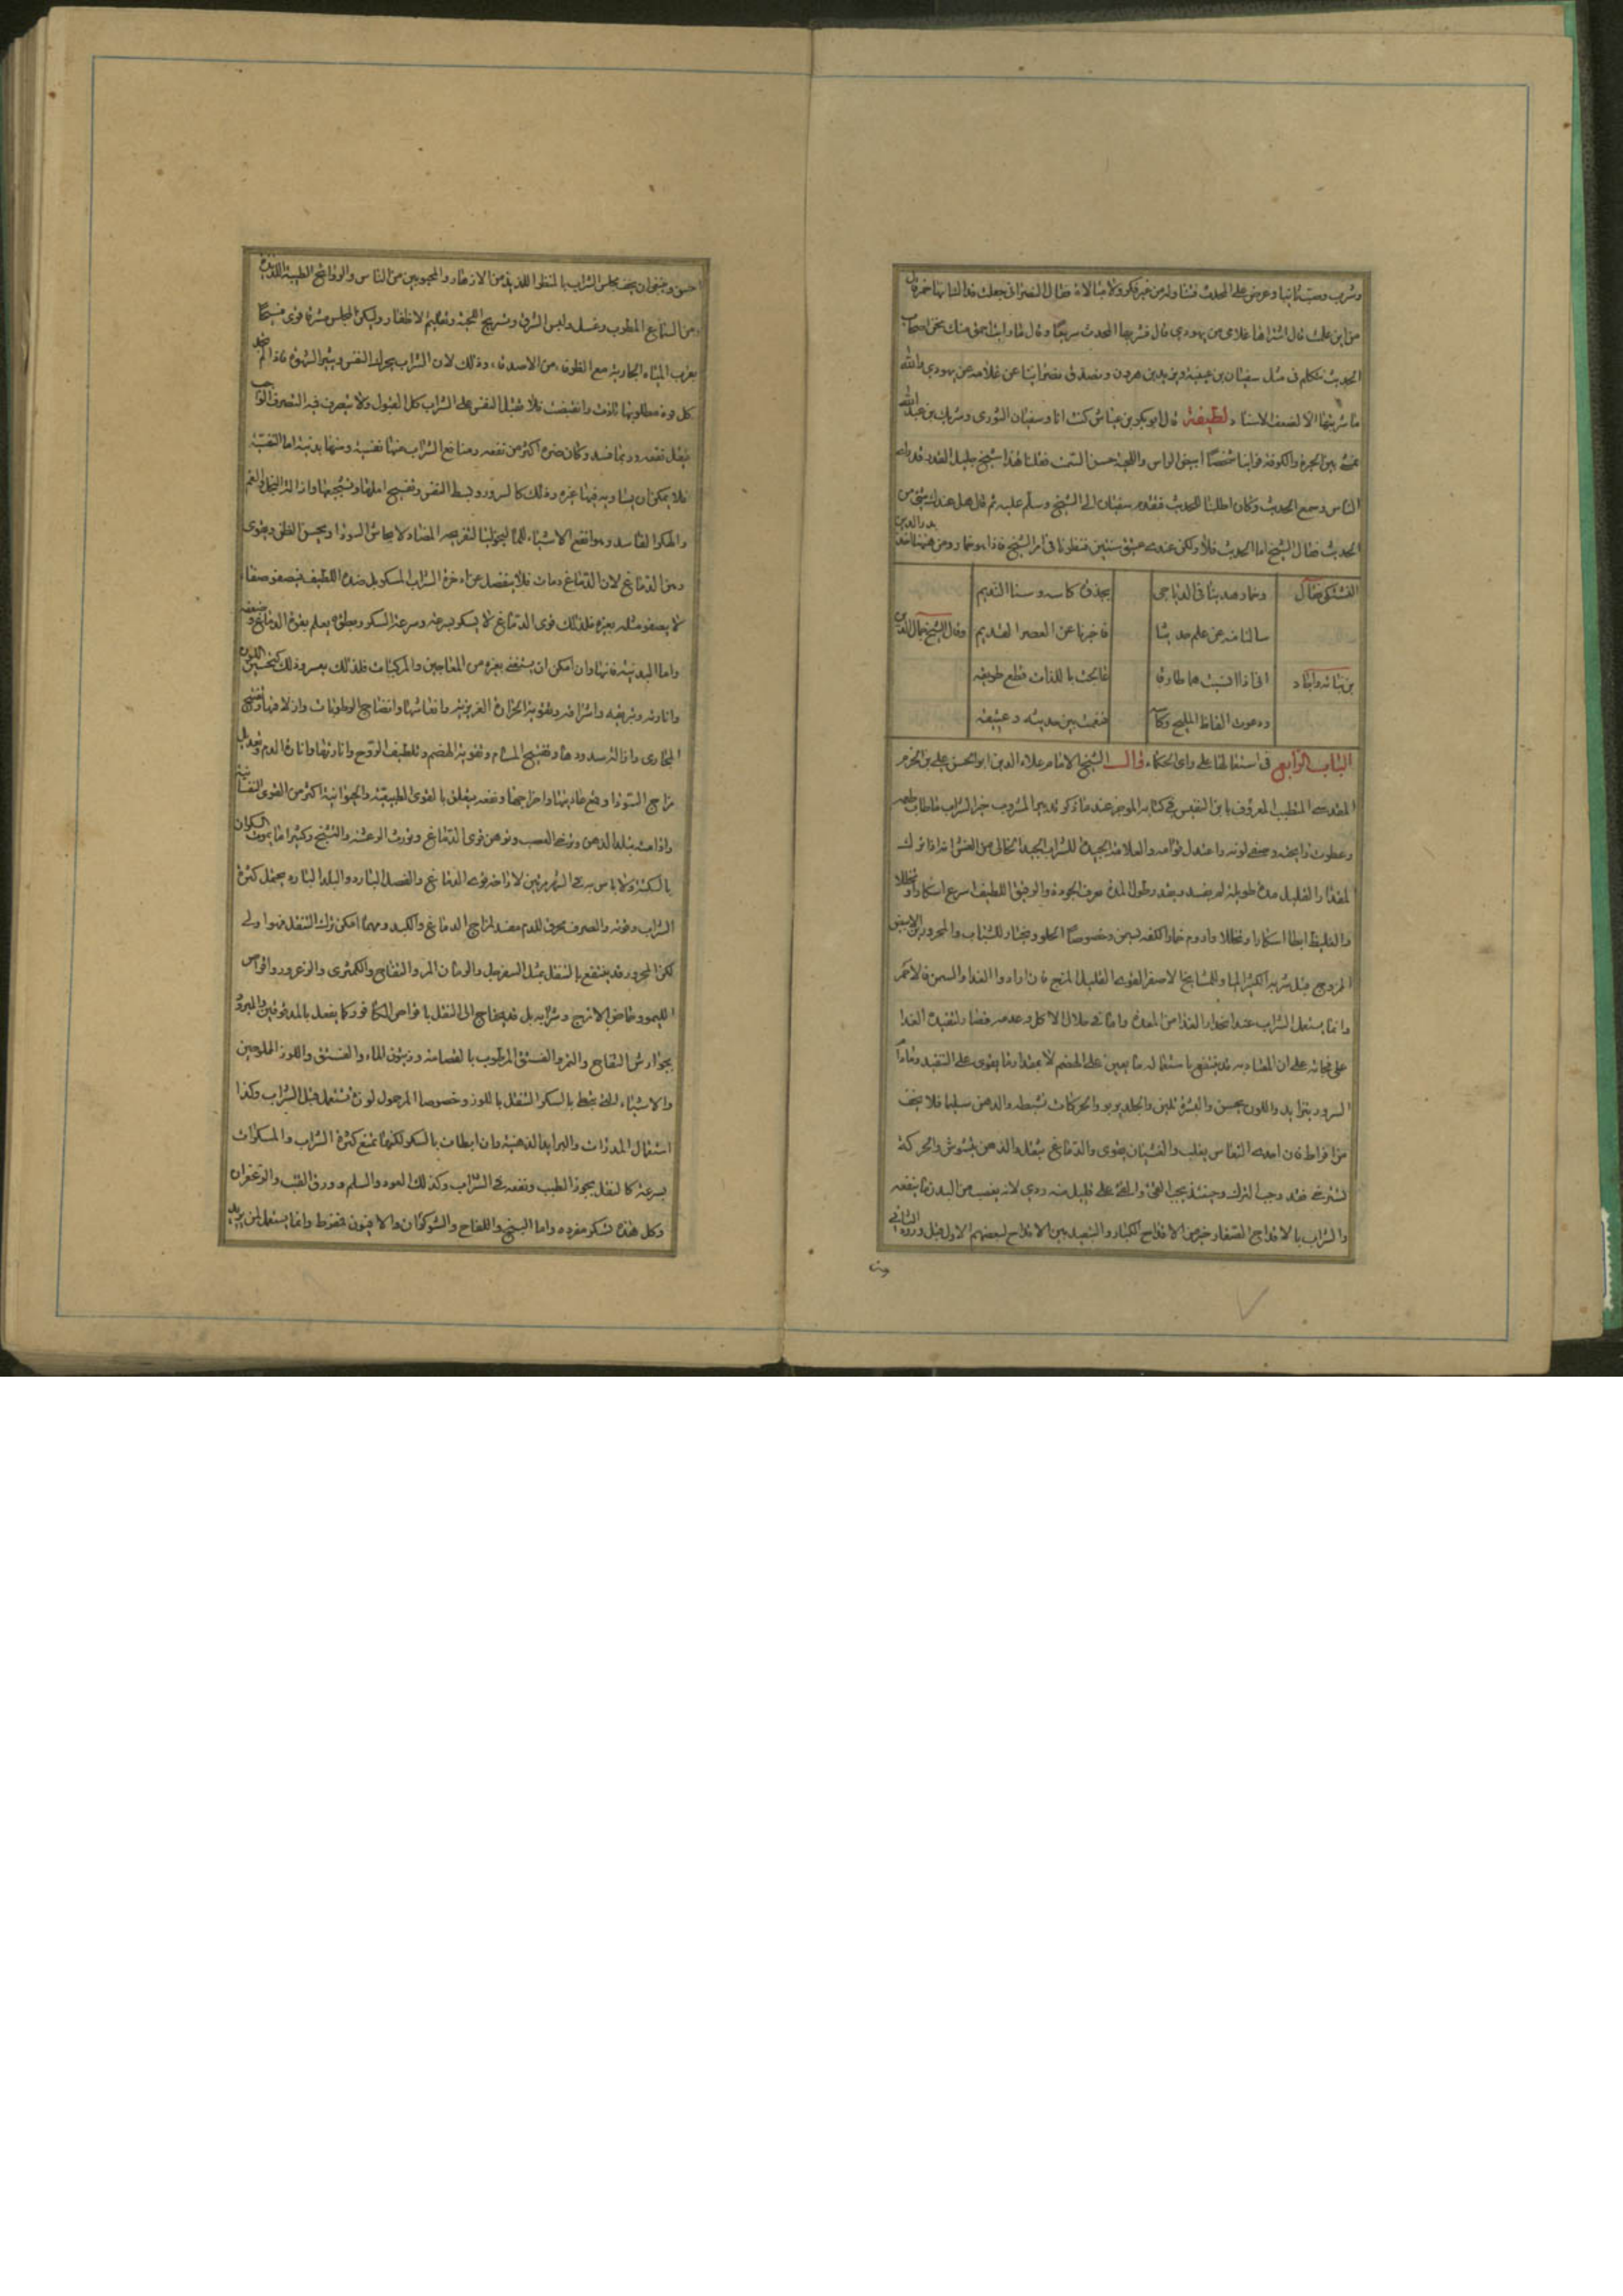 وشرب وصب ثانيا وعرض على المحدث فتناوله من غير فكر ولا مبالاة فقال النصراني جعلت فداك انما هذا خمر قال
من اين علمت قال اشتراها غلامي من يهودي قال فشربها المحدث سريعا وقال ما رايت احمق منك نحن اصحاب
الحديث نتكلم في مثل سفيان بن عيينة ويزيد بن هرون ونصدق نصرانيا عن غلامه عن يهودي والله
ما شربتها الا لضعف الاسناد لطيفة قال ابو بكر بن عياش كنت انا وسفيان الثوري وشريك بن عبد الله
نمشي بين الحيرة والكوفة فراينا شخصا ابيض الراس واللحية حسن السمت فقلنا هذا شيخ جليل القدر قد راى
الناس وسمع الحديث وكان اطلبنا للحديث فتقدم سفيان الى الشيخ وسلم عليه ثم قال هل عندك شيء من
الحديث فقال الشيخ اما الحديث فلا ولكن عندي عتيق سنتين فنظرنا في امر الشيخ فاذا هو خمار ومن هنا اخذ بدر الدين
البشتكي فقال وخمار حديثا في الدياجي يجذف كاسه وسنا النديم
سالنا منه عن علم حديثا فاخبرنا عن العصر القديم وقال الشيخ جمال الدين
بن نباته واجاد اني اذا انست هما طارقا عاجلت باللذات قطع طريقه
ودعوت الفاظ المليح وكاسه فنعمت بين حديثه وعتيقه
الباب الرابع في استعمالها على راي الحكماء قال الشيخ الامام علاء الدين ابو الحسن علي بن الحزم
المقدسي المتطبب المعروف بابن النفيس في كتابه الموجز عند ما ذكر تدبير المشروب خير الشراب ما طاب طعمه
وعطرت رايحته وصفى لونه واعتدل قوامه والعلامة الجيدة للشراب الجيد الخالي من الغش انه اذا ترك
المقدار القليل مدة طويلة لم يفسد وبقدر طول المدة يعرف الجودة والرقيق اللطيف اسرع اسكارا وتحللا
والغليظ ابطا اسكارا وتحللا وادوم خمارا لكنه يسمن وخصوصا الحلو ويختار للشباب والمحرورين الابيض
الممزوج قبل شربه الكثير الماء وللمشايخ الاصفر القوي القليل المزج فان ارادوا الغذاء والسمن فالاحمر
وانما يستعمل الشراب عند انحدار الغذا من المعدة واما في خلال الاكل وعدمه فضار لتنفيذه الغذا
على فجاجه على ان المعتاد به قد ينتفع باستعماله ما يعين على الهضم لا بمقدار ما يقوى على التنفيذ وما دام
السرور يتزايد واللون يحسن والبشرة تلين والجلد يربو والحركات نشيطة والذهن سليما فلا يخف
من افراط فان اخذ النعاس يغلب والغثيان يقوى والدماغ يثقل والذهن يتشوش والحركة
تسترخي فقد وجب الترك وحينئذ يجب القيء والقيء على قليل منه ردي لانه يغصب من البدن ما ينفعه
والشراب بالاقداح الصغار خير من الاقداح الكبار والتبعيد بين الاقداح لينهضم الاول قبل ورود الثاني
احسن وينبغي ان يحف مجلس الشراب بالمنظر اللذيذ من الازهار والمحبوبين من الناس والروائح الطيبة اللذيذة
ومن السماع المطرب وغسل ولبس الشرق وتسريح اللحية وتقليم الاظفار وليكن المجلس مشرفا قوى فسيحا
بقرب المياه الجارية مع الظرفاء من الاصدقاء وذلك لان الشراب يحرك النفس ويثير الشهوة فاذا لم تجد
كل قوة مطلوبها تاذت وانقبضت فلا تقبل النفس على الشراب كل القبول ولا يتصرف فيه التصرف الواجب
فيقل نفعه وربما فسد وكان ضره اكثر من نفعه ومنافع الشراب منها نفسية ومنها بدنية اما النفسية
فلا يمكن ان يساويه فيها غيره وذلك كالسرور وبسط النفس وتفسيح املها وتشجيعها وازالة البخل والغم
والفكر الفاسد وهو انفع الاشياء للماليخوليا لتفريحه المضاد لايحاش السوداء ويحسن الظن ويقوى
ذهن الدماغ لان الدماغ دمات فلا ينفصل عن ابخرة الشراب المسكر بل ضده اللطيف فيصفو صفاء
لا يصفو مثله بغيره فلذلك قوي الدماغ لا يسكر بسرعة وسرعة السكر وبطئه يعلم بقوة الدماغ وضعفه
واما البدنية فانها وان امكن ان يستغنى بغيره من المعاجين والمركبات فلذلك بعسر وذلك كتحسين اللون
وانارته وتبريقه واشراقه وتقوية الحرارة الغريزية وانعاشها وانضاج الرطوبات وازلاقها وتفتيح
المجاري وازالة سددها وتفتيح المسام وتقوية الهضم وتلطيف الروح وانارتها وانارة الدم وتعديل
مزاج السوداء ودفع عاديتها واخراجها ونفعه يتعلق بالقوى الطبيعية والحيوانية اكثر من القوى النفسانية
واذا ادمنه يبلد الذهن ويرخي العصب ويوهن قوى الدماغ ويورث الرعشة والتشنج وكثيرا ما يموت السكران
بالسكتة ولا باس به في الشهر مرتين لاراحة قوى الدماغ والفصل البارد والبلد البارد يحتمل كثرة
الشراب وقوته والصرف محرق للدم مفسد لمزاج الدماغ والكبد ومهما امكن ترك التنقل فهو اولى
لكن المحرور قد ينتفع بالتنقل بمثل السفرجل والرمان المز والتفاح والكمثرى والزعرور واقراص
الليمو وحماض الاترج وشرابه بل قد يحتاج الى التنقل باقراص الكافور كما يفعل بالمدقوقين والمبرود
بجوارش التفاح والتمر والفستق المرطوب بالقضامة وزيتون الماء والفستق واللوز المملوحين
والاشياء التي تبطي بالسكر التنقل باللوز وخصوصا المر حمول لوزة تستعمل قبل الشراب وكذا
استعمال المدرات والثرايد الدهنية وان ابطات بالسكر لكنها تمنع كثرة الشراب والمسكرات
بسرعة كالتنقل بجوز الطيب ونقعه في الشراب وكذلك العود والسلم وورق القنب والزعفران
وكل هذه تسكر مفردة واما البنج واللفاح والشوكران والافيون فمفرط وانما يستعمل لمن يريد